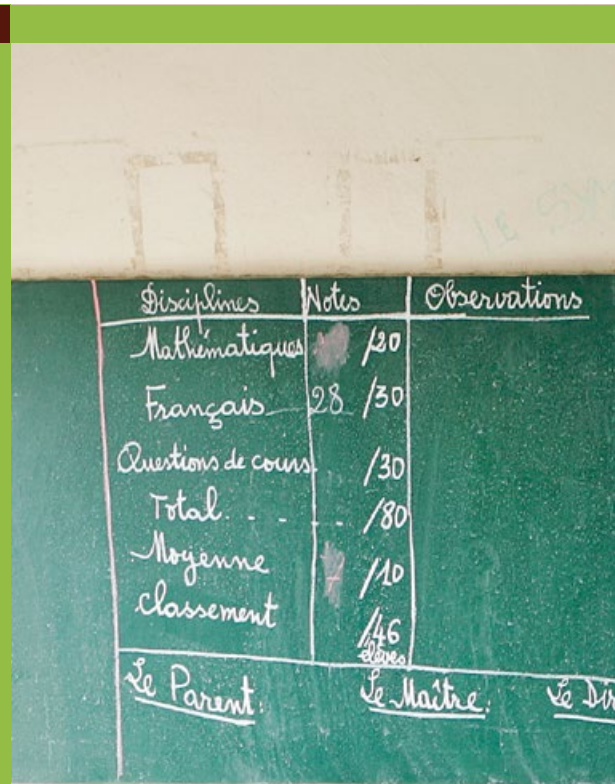 Disciplines Notes Observations
Mathématiques /20
Français 28 /30
Questions de cours. /30
Total. . - . - . /80
Moyenne /10
classement /46
élèves
Le Parent: Le Maître: Le Dir